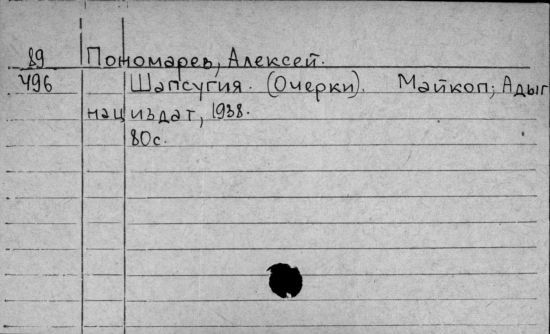 89 Пономарев, Алексей.
496 Шапсугия. (Очерки). Майкоп, Адыг
нациздат, 1938.
80с.